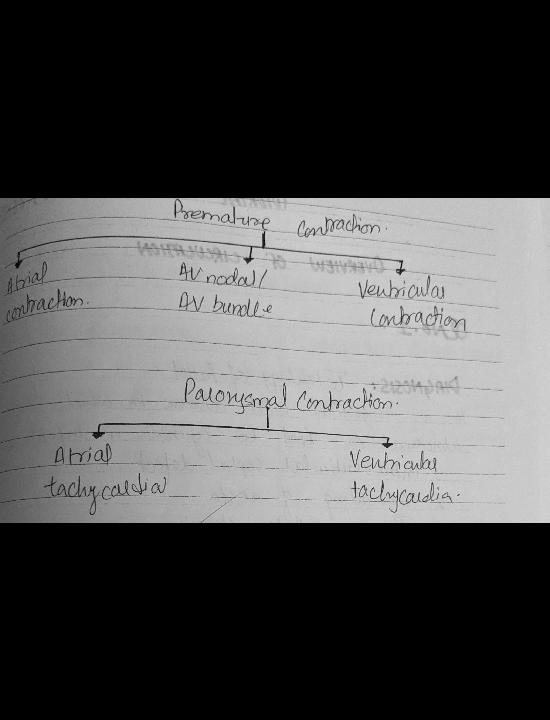 Premature Contraction.
Atrial contraction.
AV nodal/
AV bundle
Ventricular
Contraction
Paroxysmal Contraction.
Atrial
tachycardia
Ventricular
tachycardia.